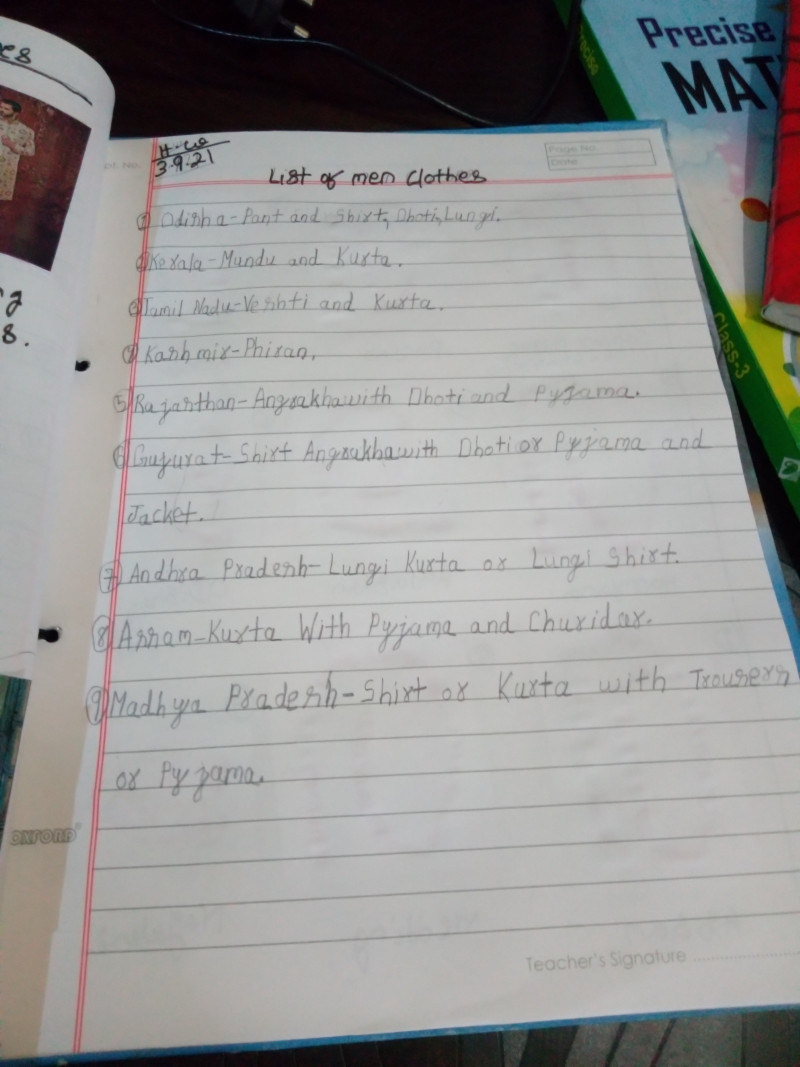 es
Precise
MAT
Precise
H.W
3.9.21
Page No.
Date
List of men clothes
① Odisha-Pant and Shirt, Dhoti, Lungi.
② Kerala-Mundu and Kurta.
③ Tamil Nadu-Veshti and Kurta.
④ Kashmir-Phiran.
⑤ Rajasthan-Angrakha with Dhoti and Pyjama.
⑥ Gujurat-Shirt Angrakha with Dhoti or Pyjama and
Jacket.
⑦ Andhra Pradesh-Lungi Kurta or Lungi Shirt.
⑧ Assam-Kurta With Pyjama and Churidar.
⑨ Madhya Pradesh-Shirt or Kurta with Trousers
or Pyjama.
8.
Class-3
OXFORD
Teacher's Signature